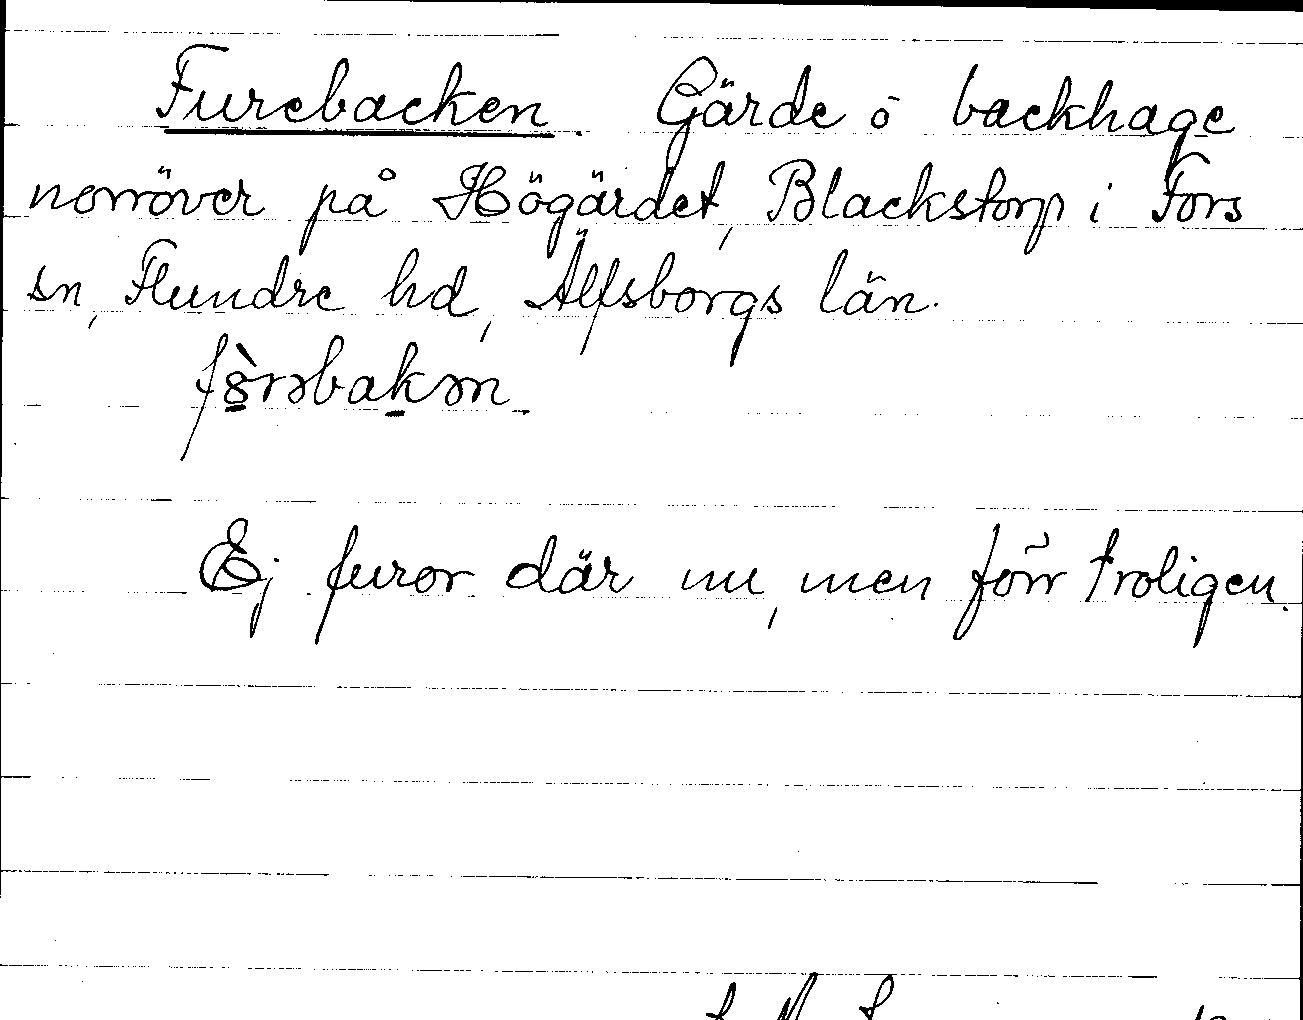 Furebacken. Gärde ō backhage
norröver på Högärdet, Blackstorp i Fors
sn, Flundre hd, Älfsborgs län.
Ej furor där nu, men förr troligen.